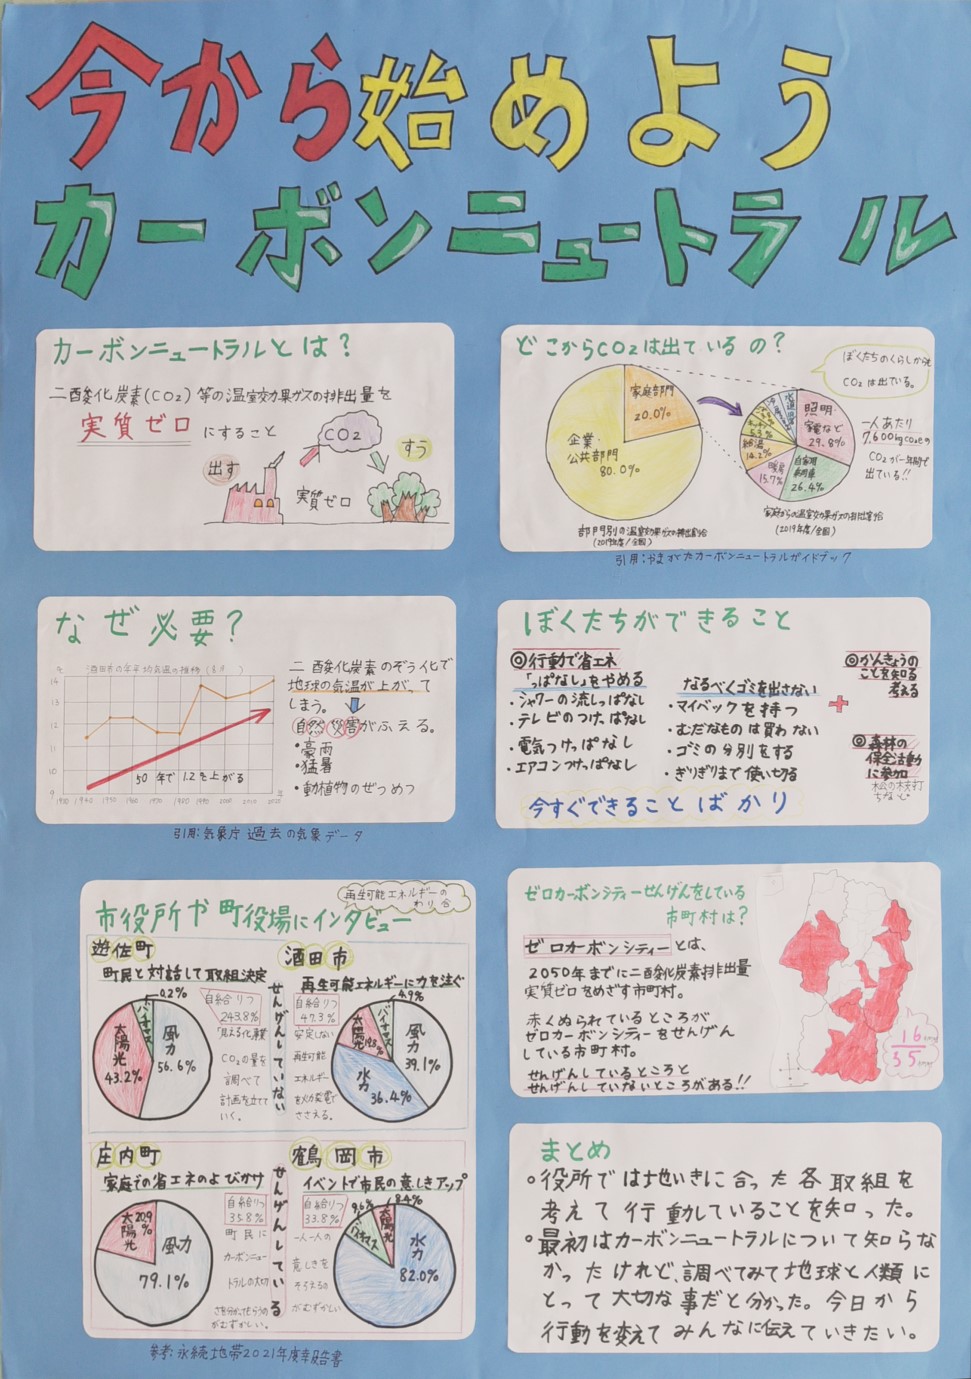 今から始めよう
カーボンニュートラル
カーボンニュートラルとは？
二酸化炭素(CO₂)等の温室効果ガスの排出量を
実質ゼロにすること
CO₂
出す
すう
実質ゼロ
どこからCO₂は出ているの？
ぼくたちのくらしからも
CO₂は出ている。
家庭部門
20.0%
企業・
公共部門
80.0%
照明・
家電など
29.8%
自家用
乗用車
26.4%
暖房
15.7%
給湯
14.2%
キッチン
5.3%
水道
一人あたり
7,600kgCO₂eの
CO₂が一年間で
出ている!!
部門別の温室効果ガスの排出割合
(2019年度/全国)
家庭からの温室効果ガスの排出割合
(2019年度/全国)
引用:やまがたカーボンニュートラルガイドブック
なぜ必要？
酒田市の年平均気温の推移
℃
14
13
12
11
10
9
50年で1.2℃上がる
1930 1940 1950 1960 1970 1980 1990 2000 2010 2020
年
二酸化炭素のぞう化で
地球の気温が上がって
しまう。
自然災害がふえる。
・豪雨
・猛暑
・動植物のぜつめつ
引用:気象庁 過去の気象データ
ぼくたちができること
◎行動で省エネ
「っぱなし」をやめる
・シャワーの流しっぱなし
・テレビのつけっぱなし
・電気つけっぱなし
・エアコンつけっぱなし
なるべくゴミを出さない
・マイバックを持つ
・むだなものは買わない
・ゴミの分別をする
・ぎりぎりまで使い切る
+
◎かんきょうの
ことを知る
考える
◎森林の
保全活動
に参加
今すぐできることばかり
市役所や町役場にインタビュー
再生可能エネルギーの
わり合
遊佐町
町民と対話して取組決定
0.2%
バイオマス
太陽光
43.2%
風力
56.6%
自給合りつ
243.8%
「見える化」事業
CO₂の量を
調べて
計画を立てて
いく。
せんげんしていない
酒田市
再生可能エネルギーに力を注ぐ
自給合りつ
47.3%
安定しない
再生可能
エネルギー
を火力発電で
ささえる。
4.9%
バイオマス
太陽光
風力
39.1%
水力
36.4%
庄内町
家庭での省エネのよびかけ
太陽光
20.9%
風力
79.1%
自給合りつ
35.8%
町民に
カーボンニュー
トラルの大切
さを分かってもらうの
がむずかしい。
せんげんしている
鶴岡市
イベントで市民の意しきアップ
自給合りつ
33.8%
一人一人の
意しきを
そろえるの
がむずかしい
9.6%
バイオマス
8.4%
太陽光
水力
82.0%
参考:永続地帯2021年度報告書
ゼロカーボンシティーせんげんをしている
市町村は？
ゼロカーボンシティーとは、
2050年までに二酸化炭素排出量
実質ゼロをめざす市町村。
赤くぬられているところが
ゼロカーボンシティーをせんげん
している市町村。
せんげんしているところと
せんげんしていないところがある!!
16
35
まとめ
○役所では地いきに合った各取組を
考えて行動していることを知った。
○最初はカーボンニュートラルについて知らな
かったけれど、調べてみて地球と人類に
とって大切な事だと分かった。今日から
行動を変えてみんなに伝えていきたい。